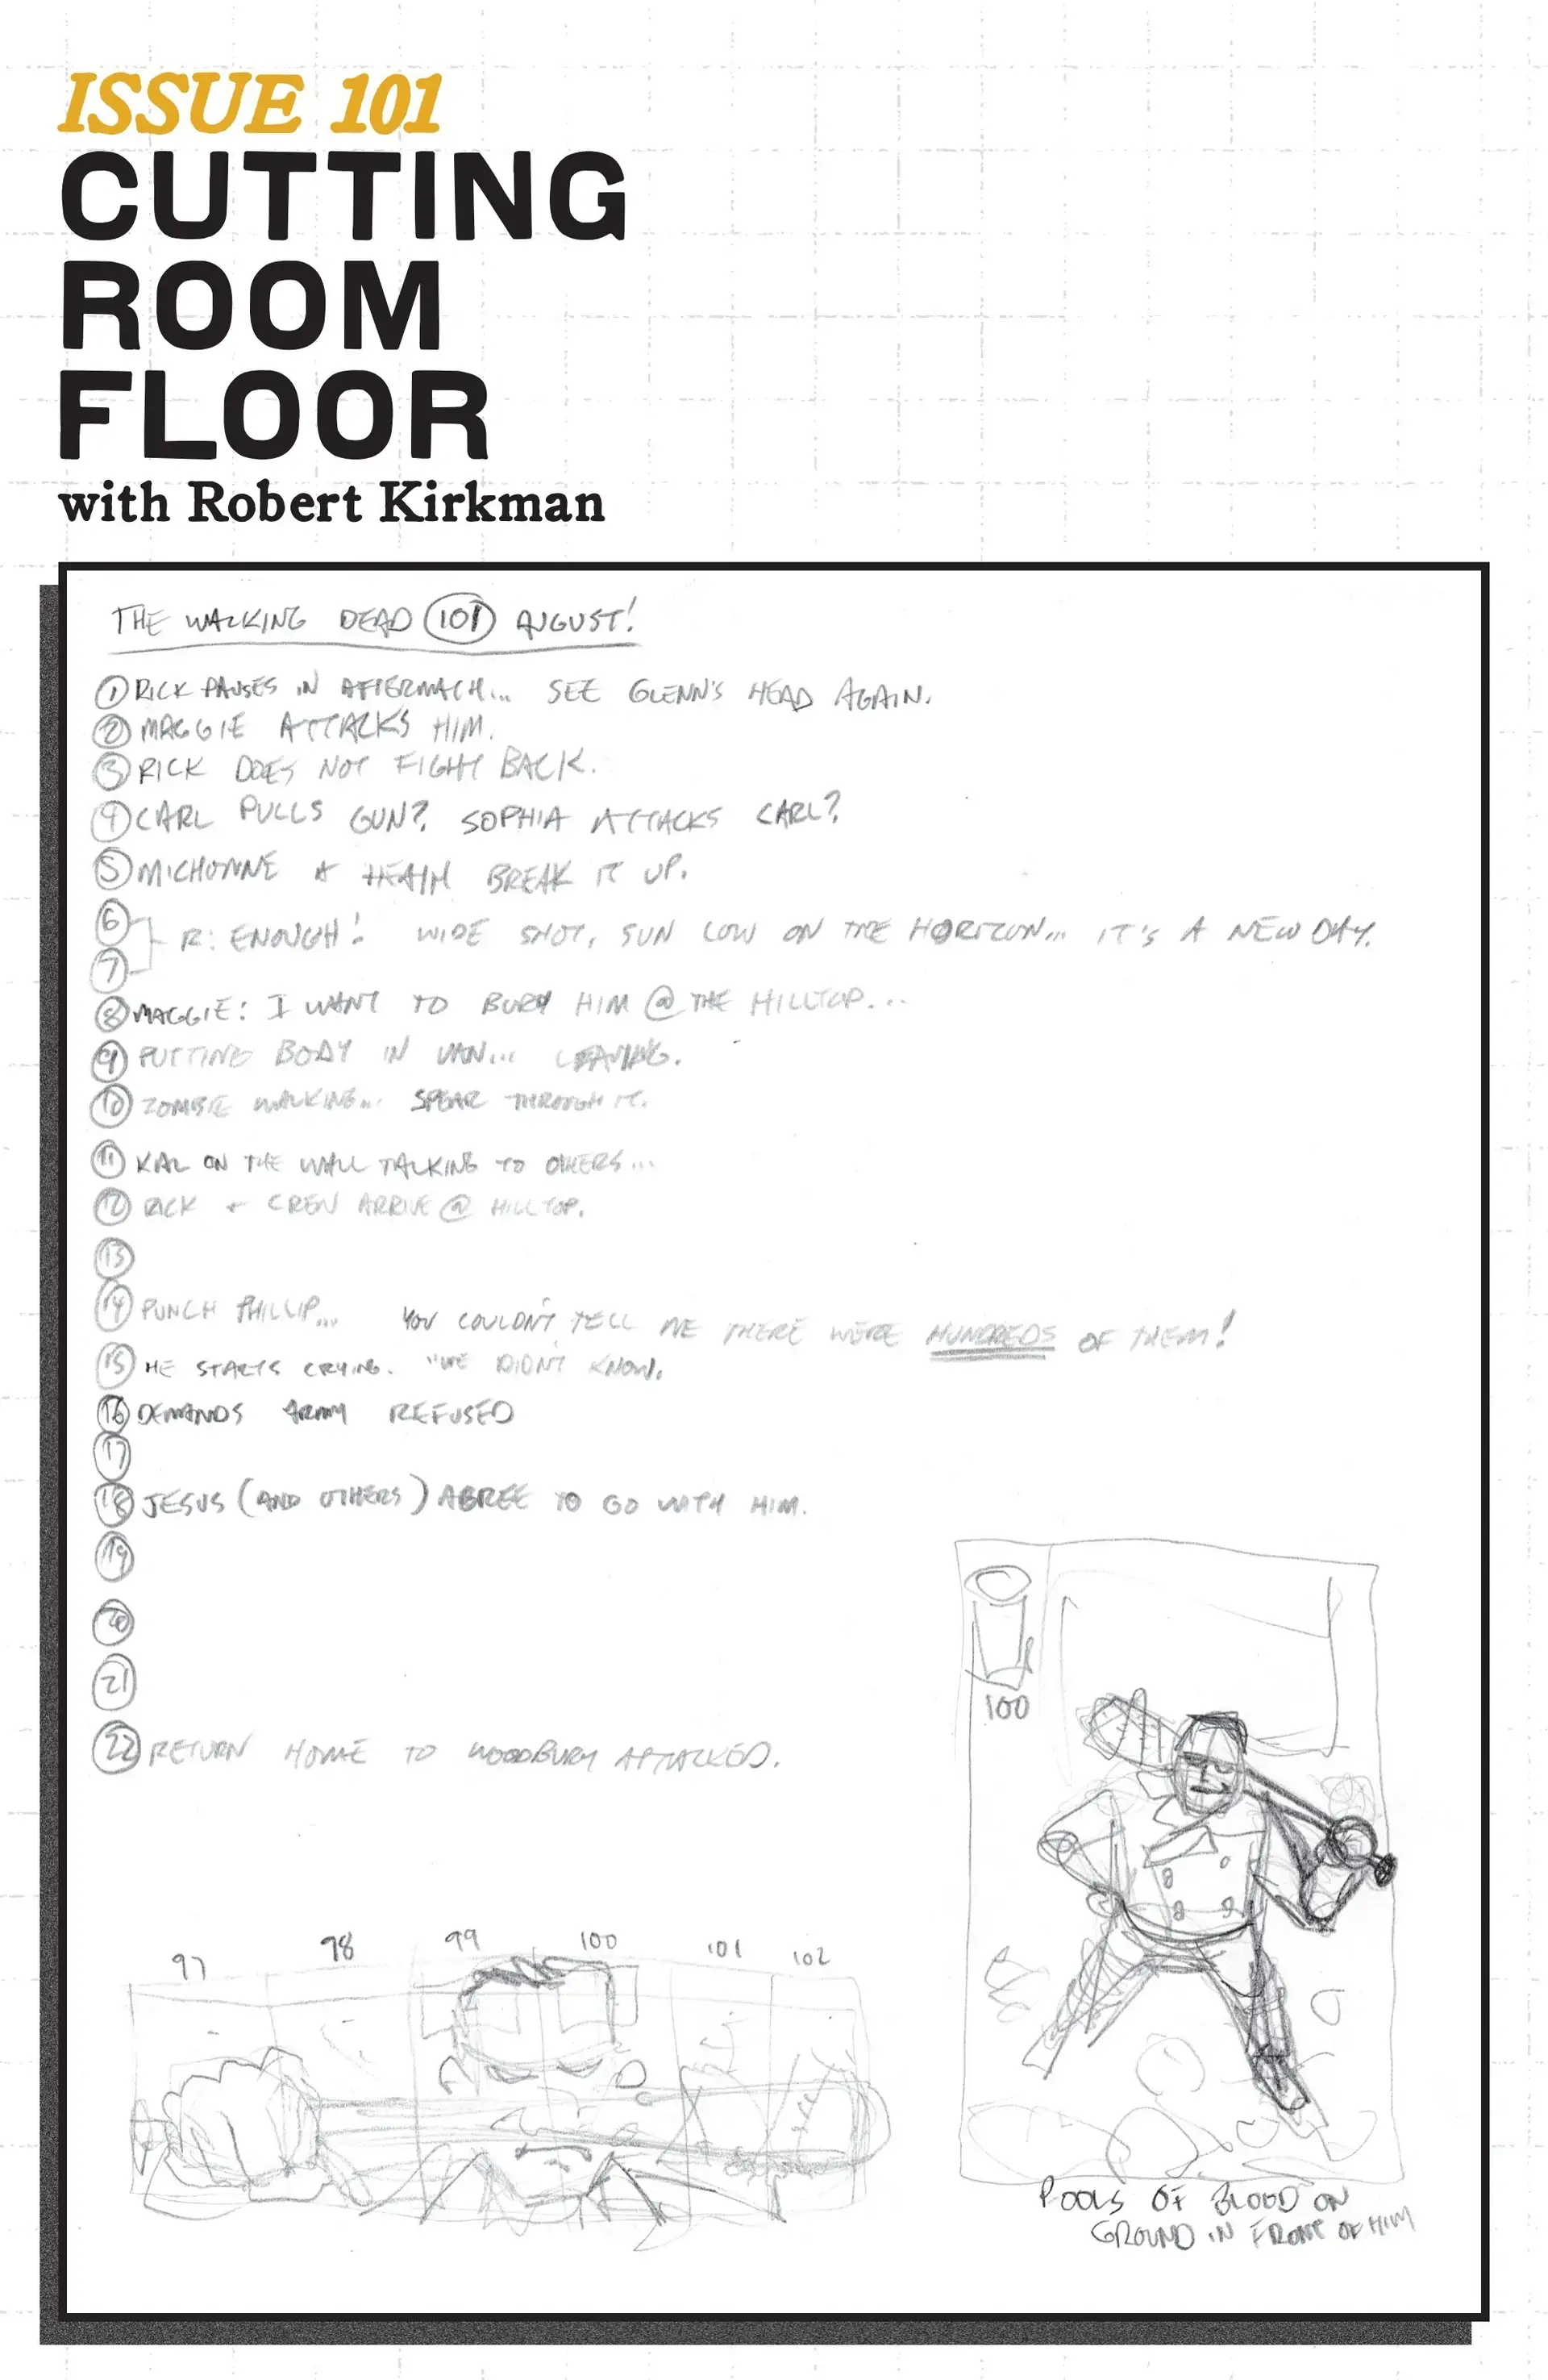 ISSUE 101
CUTTING
ROOM
FLOOR
with Robert Kirkman
THE WALKING DEAD 101 AUGUST!
1 RICK PAUSES IN AFTERMATH... SEE GLENN'S HEAD AGAIN.
2 MAGGIE ATTACKS HIM.
3 RICK DOES NOT FIGHT BACK.
4 CARL PULLS GUN? SOPHIA ATTACKS CARL?
5 MICHONNE & HEATH BREAK IT UP.
6
R: ENOUGH! WIDE SHOT, SUN LOW ON THE HORIZON... IT'S A NEW DAY.
7
8 MAGGIE: I WANT TO BURY HIM @ THE HILLTOP...
9 PUTTING BODY IN VAN... LEAVING.
10 ZOMBIE WALKING... SPEAR THROUGH IT.
11 KAL ON THE WALL TALKING TO OTHERS...
12 RICK + CREW ARRIVE @ HILLTOP.
13
14 PUNCH PHILLIP... YOU COULDN'T TELL ME THERE WERE HUNDREDS OF THEM!
15 HE STARTS CRYING. "WE DIDN'T KNOW.
16 DEMANDS ARMY REFUSED
17
18 JESUS (AND OTHERS) AGREE TO GO WITH HIM.
19
20
21
22 RETURN HOME TO WOODBURY ATTACKED.
100
97 98 99 100 101 102
POOLS OF BLOOD ON
GROUND IN FRONT OF HIM